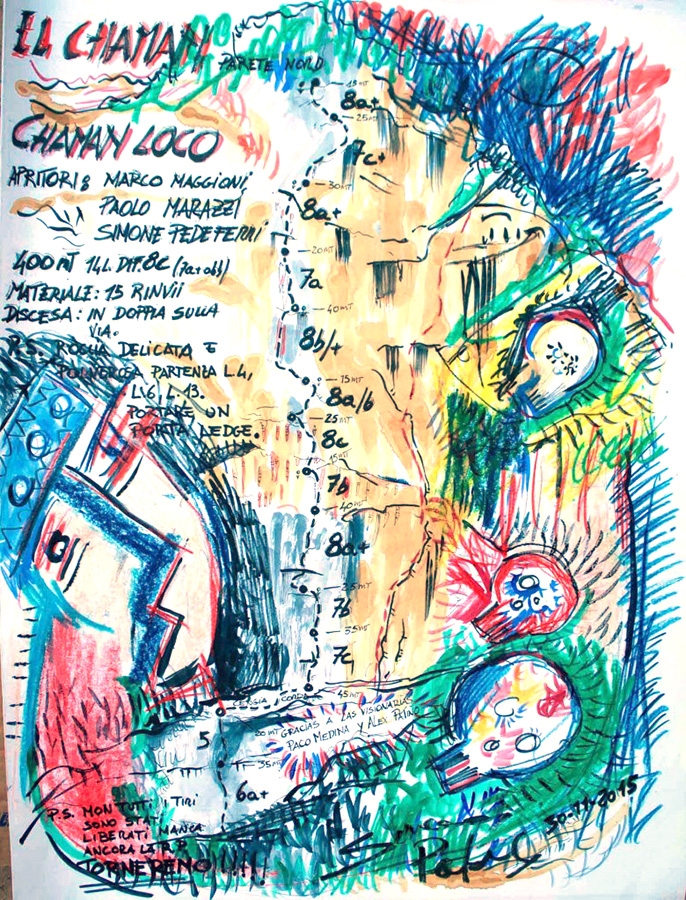 EL CHAMAN
PARETE NORD
CHAMAN LOCO
APRITORI: MARCO MAGGIONI,
PAOLO MARAZZI
SIMONE PEDEFERRI
400MT 14L. DIF. 8C (7a+ obb)
MATERIALE: 15 RINVII
DISCESA: IN DOPPIA SULLA
VIA.
P.S. ROCCIA DELICATA E
POLVEROSA PARTENZA L.4,
L.6, L.13.
PORTARE UN
PORTA LEDGE.
15MT
8a+
25MT
7c+
30MT
8a+
20MT
7a
40MT
8b/+
15MT
8a/b
25MT
8c
15MT
7b
40MT
8a+
35MT
7b
35MT
7c
45MT
CENGIA CORDA
5
20MT GRACIAS A LAS VISIONARIAS
PACO MEDINA Y ALEX PATIÑO
35MT
6a+
P.S. NON TUTTI I TIRI
SONO STATI
LIBERATI MANCA
ANCORA LA R.P.
TORNEREMO!!!!!
30-11-2015